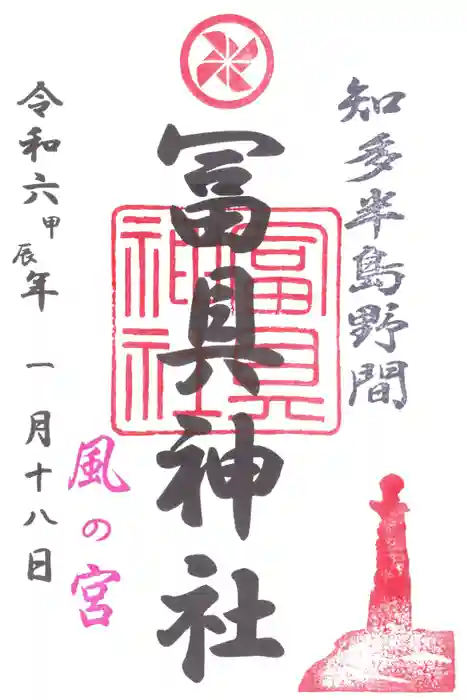 知多半島野間
冨具神社
冨具
神社
風の宮
令和六甲辰年 一月十八日